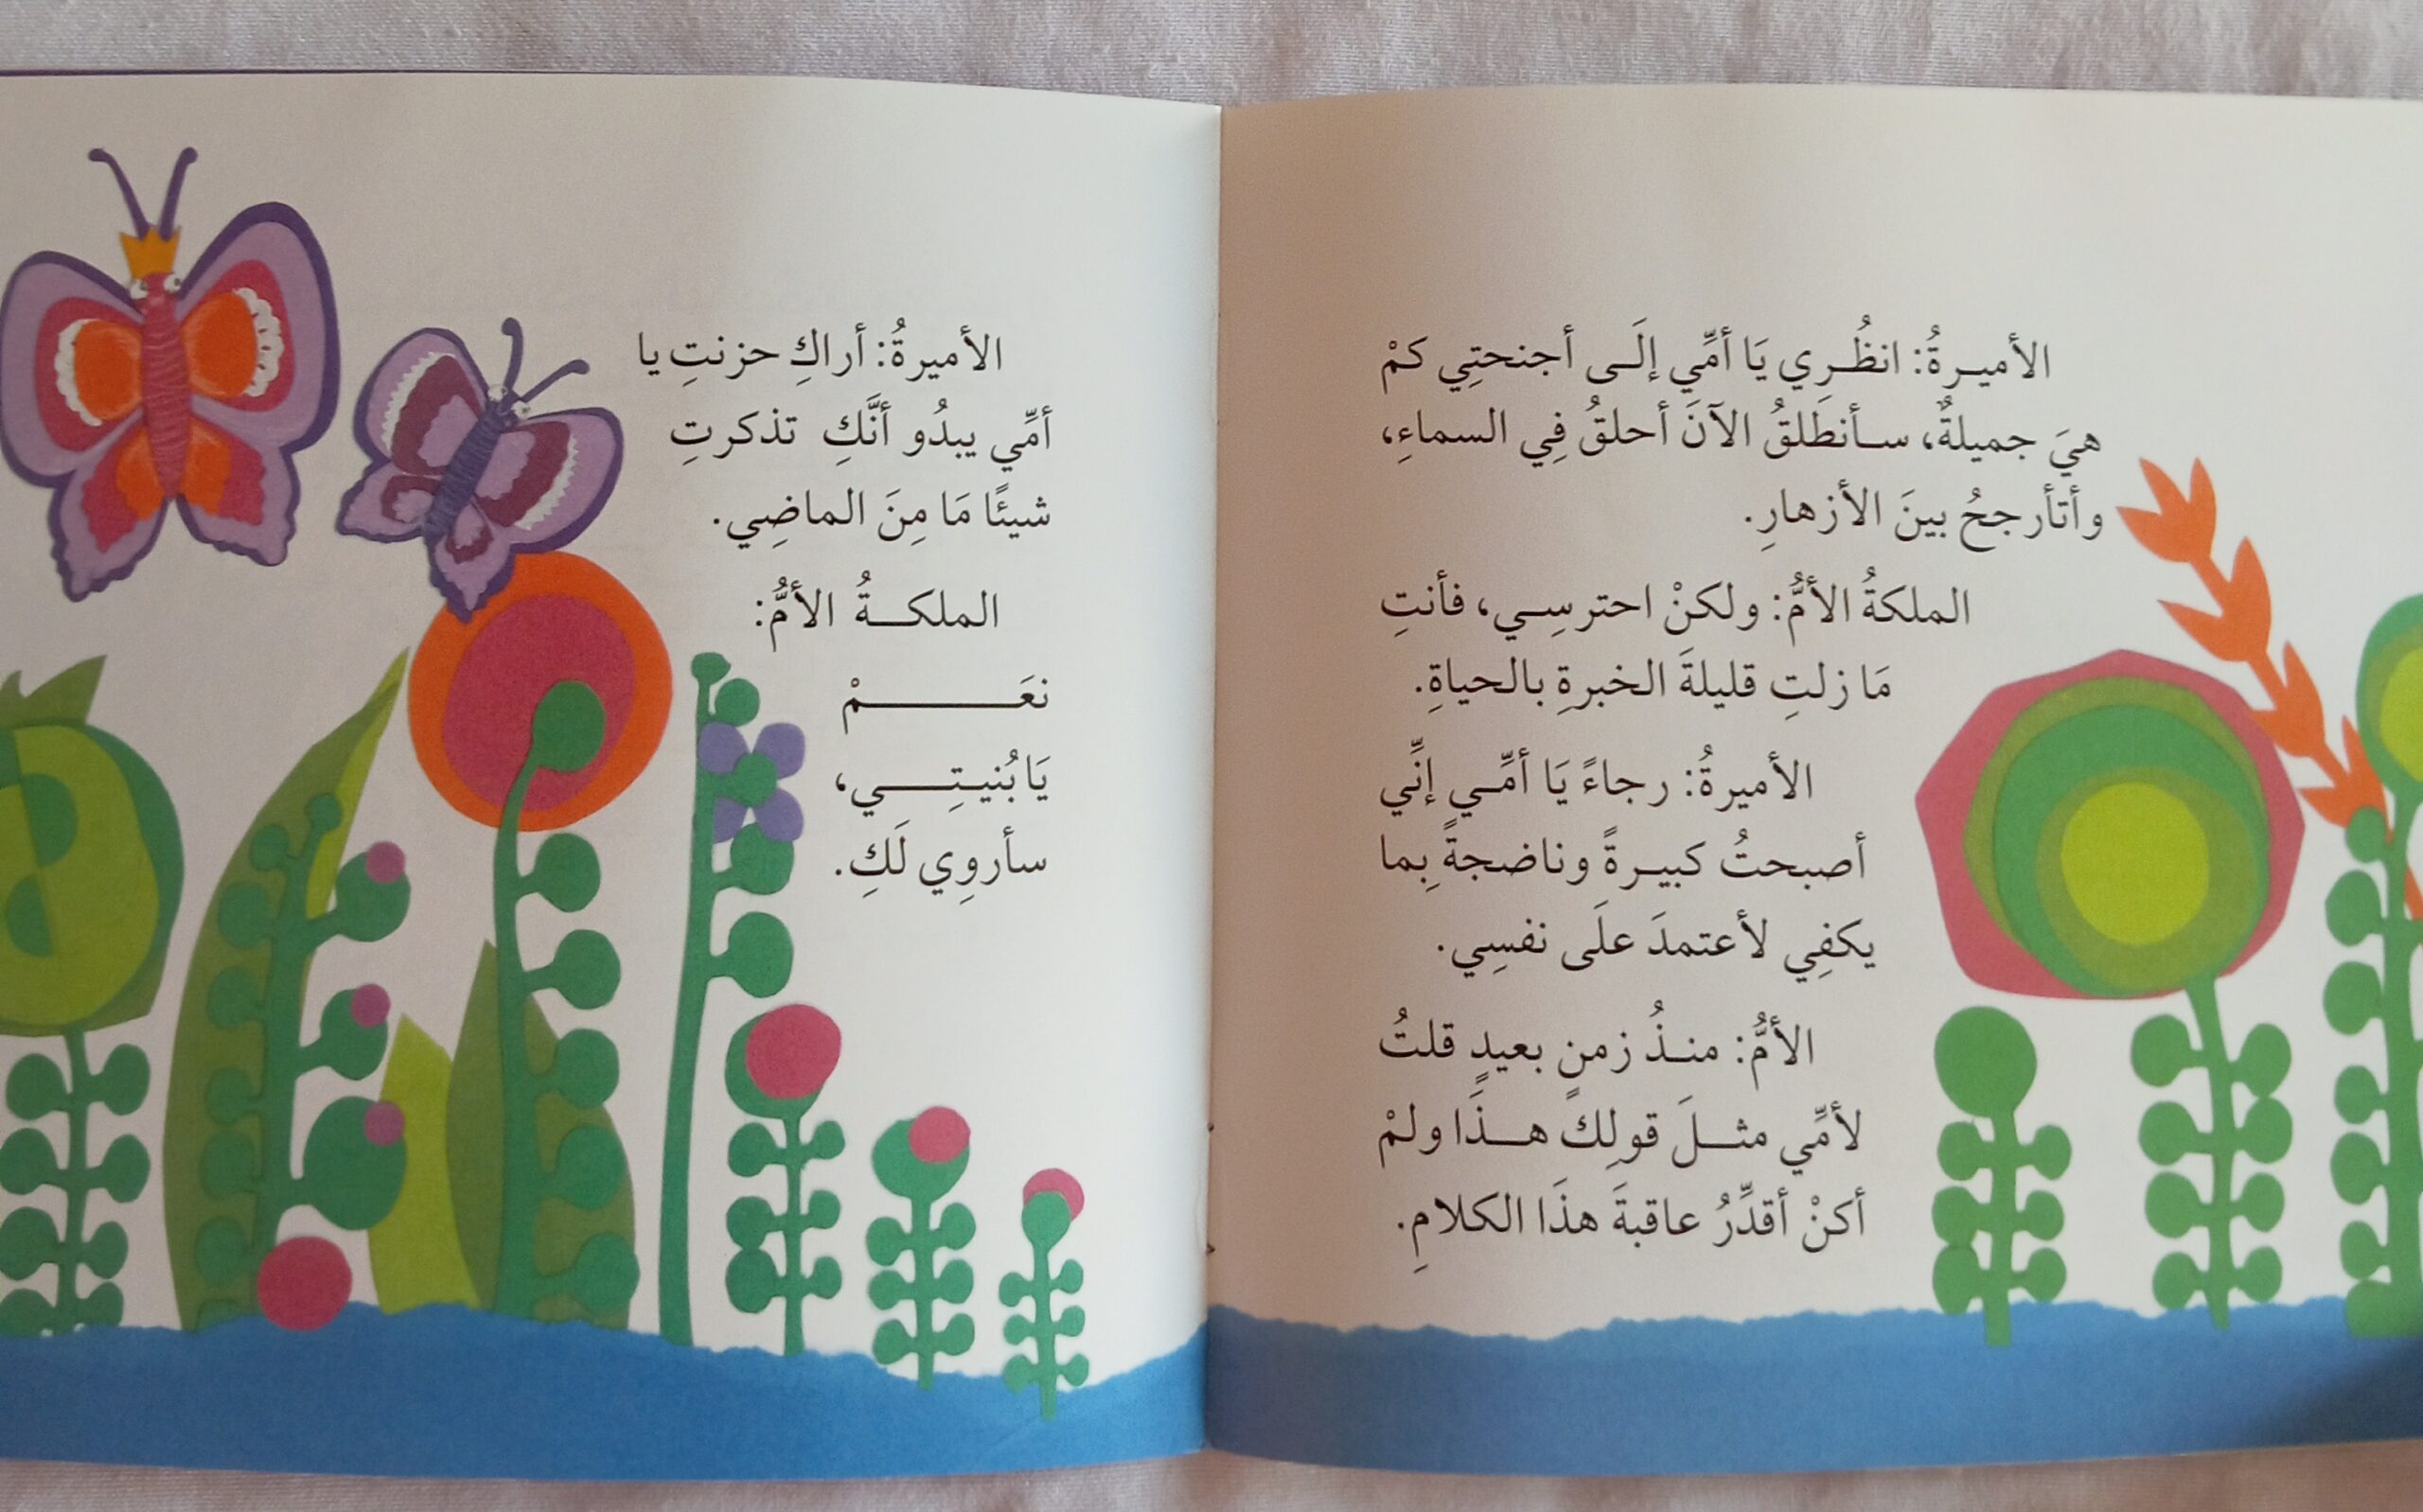 الأميرةُ: انظُرِي يَا أمِّي إلَى أجنحتِي كمْ
هيَ جميلةٌ، سأنطَلقُ الآنَ أحلقُ فِي السماءِ،
وأتأرجحُ بينَ الأزهارِ.
الملكةُ الأمُّ: ولكنْ احترسِي، فأنتِ
مَا زلتِ قليلةَ الخبرةِ بالحياةِ.
الأميرةُ: رجاءً يَا أمِّي إنِّي
أصبحتُ كبيرةً وناضجةً بِما
يكفِي لأعتمدَ علَى نفسِي.
الأمُّ: منذُ زمنٍ بعيدٍ قلتُ
لأمِّي مثلَ قولِكَ هذَا ولمْ
أكنْ أقدِّرُ عاقبةَ هذَا الكلامِ.
الأميرةُ: أراكِ حزنتِ يا
أمِّي يبدُو أنَّكِ تذكرتِ
شيئًا مَا مِنَ الماضِي.
الملكةُ الأمُّ:
نعَمْ
يَا بُنيتِي،
سأروِي لَكِ.